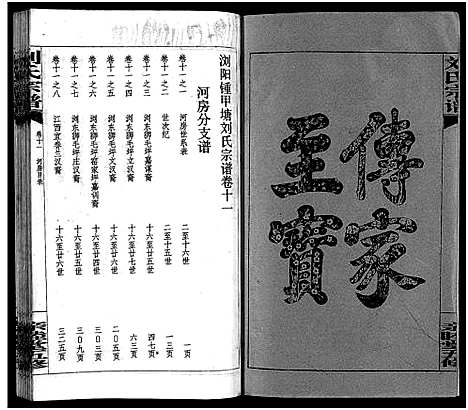 刘氏宗谱
傳家至寳
宗睦堂五修
浏阳锺甲塘刘氏宗谱卷十一
河房分支谱
卷十一之一 河房世系表 二至十六世 一页
卷十一之二 世次纪 二至十五世 一三页
卷十一之三 浏东狮毛坪嘉谋裔 十六至廿五世 四七页
卷十一之四 浏东狮毛坪文汉裔 十六至廿五世 六三页
卷十一之五 浏东狮毛坪文汉裔 十六至廿四世 二〇五页
卷十一之六 嘉训裔 十六至廿四世 三〇三页
卷十一之七 浏东狮毛坪庄汉裔 十六至廿世 三〇九页
卷十一之八 江西 汉裔 十六至廿五世 三二五页
刘氏宗谱
卷十一
河房目录
宗睦堂五修